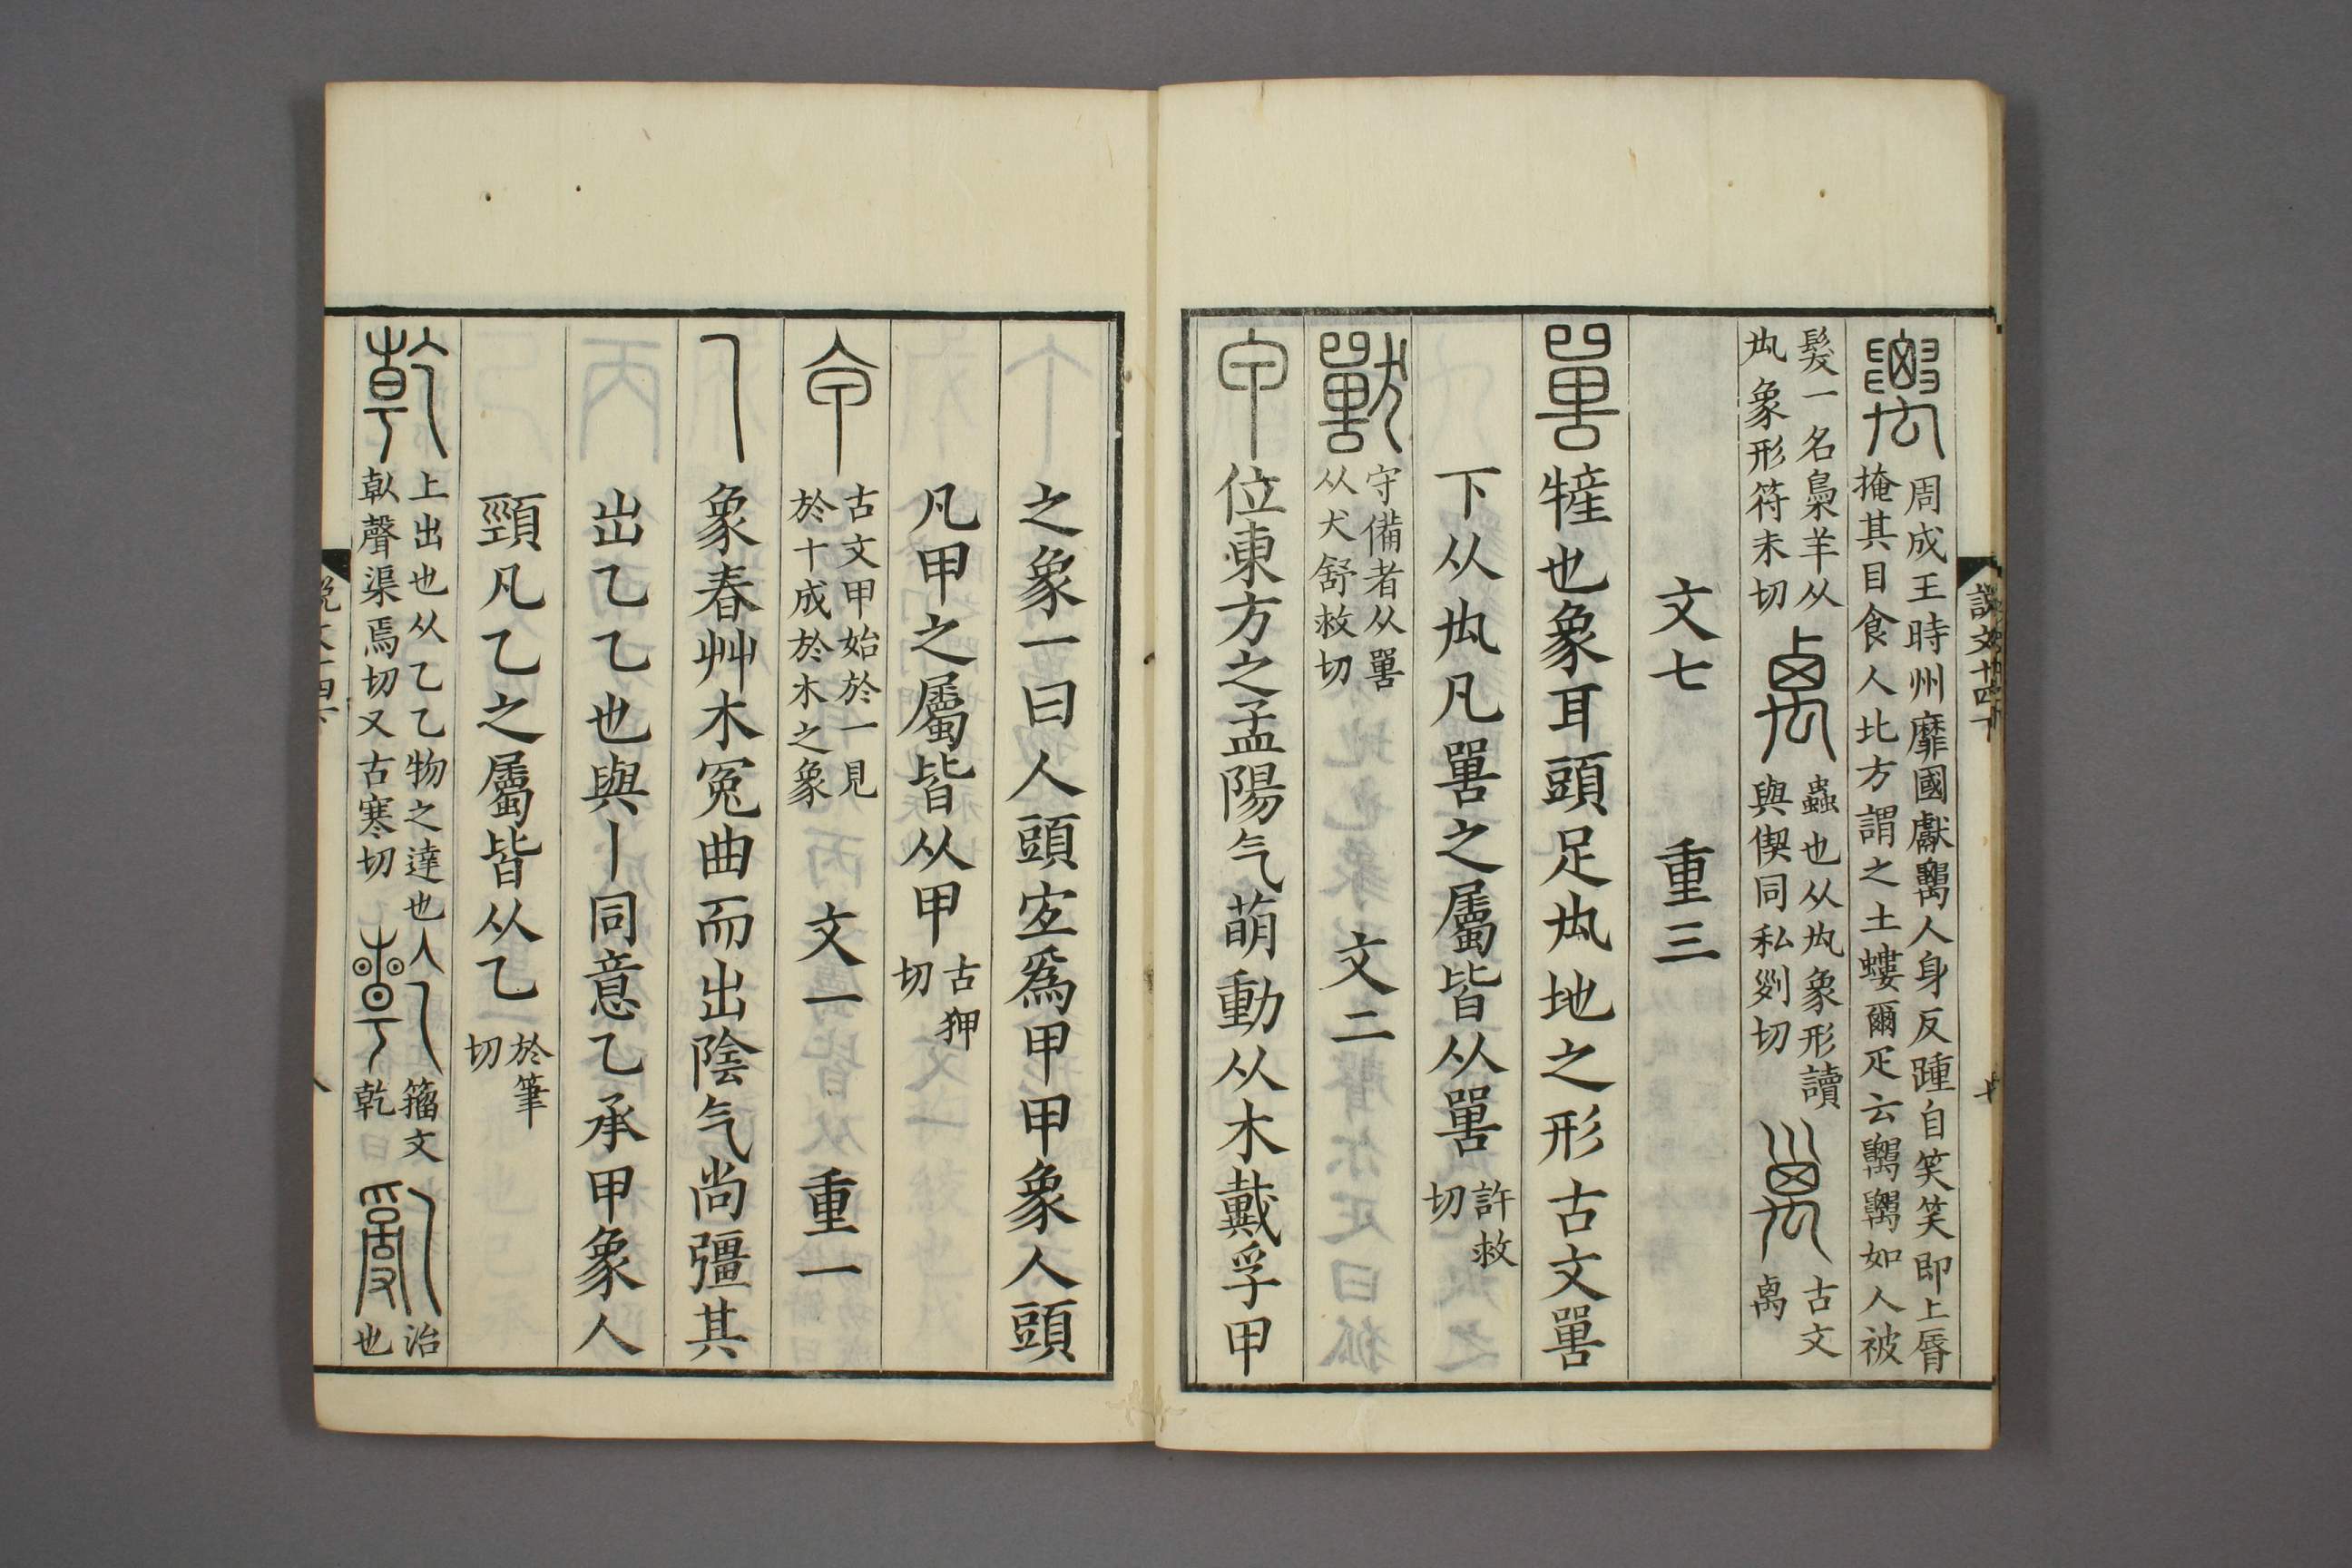 𥝌周成王時州靡國獻𥝌人身反踵自笑笑即上脣掩其目食人北方謂之土螻爾疋云𥝌𥝌如人被
髮一名梟羊从厹象形符未切 卨蟲也从厹象形讀與偰同私列切 𥜿古文卨
文七 重三
嘼㹌也象耳頭足厹地之形古文嘼
下从厹凡嘼之屬皆从嘼許救切
獸守備者从嘼从犬舒救切 文二
甲位東方之孟陽气萌動从木戴孚甲
之象一曰人頭宐爲甲甲象人頭
凡甲之屬皆从甲古狎切
古文甲始於一見於十成於木之象 文一 重一
乙象春艸木冤曲而出陰气尚彊其
出乙乙也與丨同意乙承甲象人
頸凡乙之屬皆从乙於筆切
乾上出也从乙乙物之達也倝聲渠焉切又古寒切 籒文乾 亂治也
說文十四下